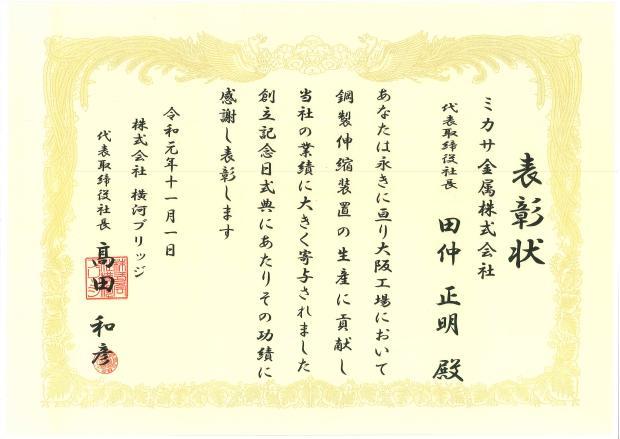 表彰状
ミカサ金属株式会社
代表取締役社長 田仲 正明 殿
あなたは永きに亘り大阪工場において
鋼製伸縮装置の生産に貢献し
当社の業績に大きく寄与されました
創立記念日式典にあたりその功績に
感謝し表彰します
令和元年十一月一日
株式会社 横河ブリッジ
代表取締役社長 髙田 和彦